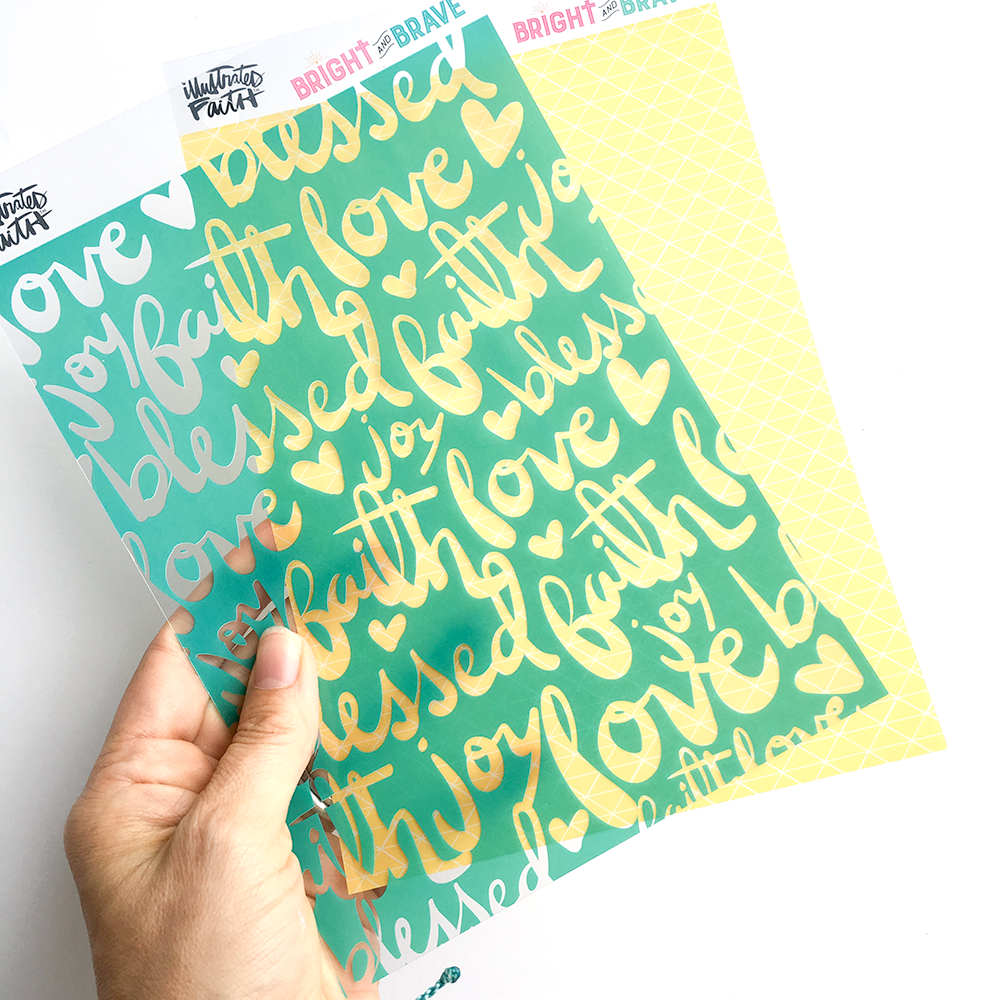 BRIGHT AND BRAVE
BRIGHT AND BRAVE
illustrated FAITH
illustrated FAITH
blessed
love
love
joy
faith
joy
faith
blessed
blessed
joy
love
love
faith
joy
faith
blessed
joy
love
faith
joy
faith love
blessed